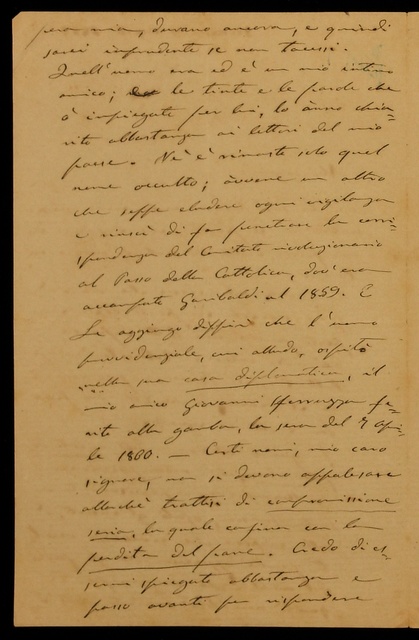 pera mia, durano ancora, e quindi
sarei imprudente se non tacessi.
Quell'uomo era ed è un mio intimo
amico; le tinte e le parole che
ò impiegate per lui, lo ànno chia-
rito abbastanza ai lettori del mio
paese. Nè è rimasto solo quel
nome occulto; àvvene un altro
che seppe eludere ogni vigilanza
e riuscì di far penetrare la corri-
spondenza del Comitato rivoluzionario
al Passo della Cattolica, dov'era
accampato Garibaldi nel 1859. E
Le aggiungo che l'uomo
provvidenziale, cui alludo, ospitò
nella sua casa diplomatica, il
mio amico Giovanni fe-
rito alla gamba, la sera del 7 Apri-
le 1860. — Certi nomi, mio caro
signore, non si devono appalesare
allorchè trattisi di compromissione
seria, la quale confina con la
perdita del pane. Credo di es-
sermi spiegato abbastanza e
passo avanti per rispondere